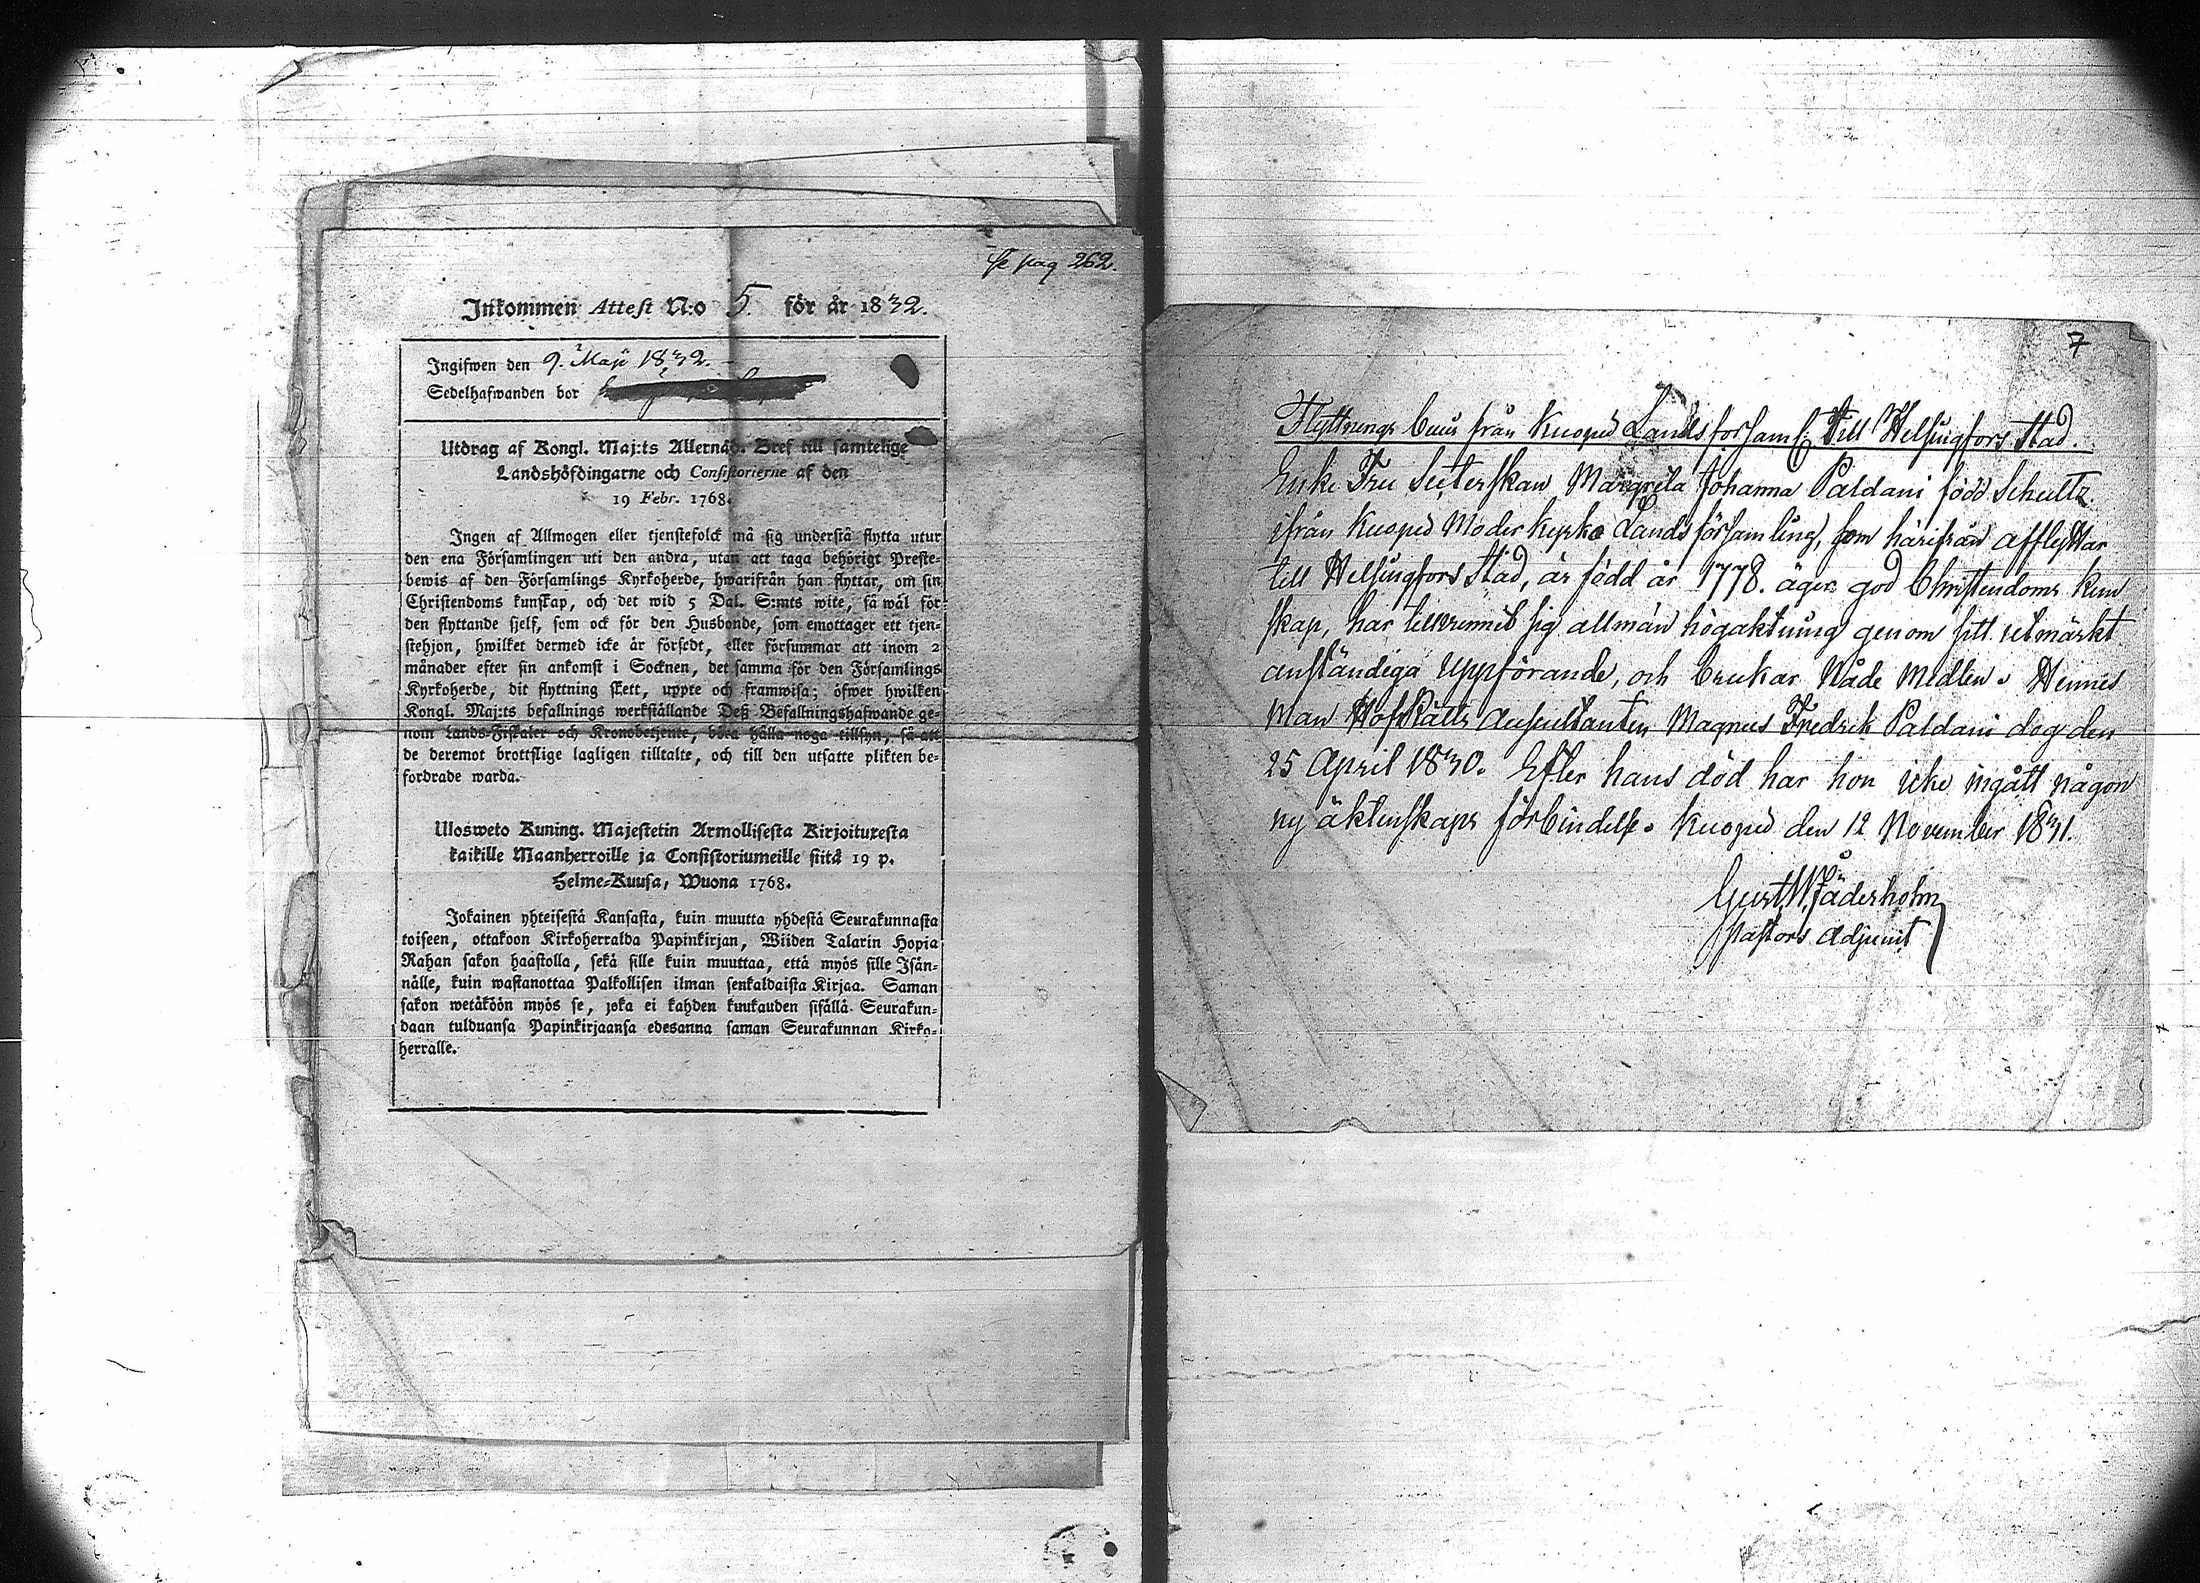 Se pag 262.
Inkommen Attest N:o 5. för år 1832.
Ingifwen den 9. Maji 1832.
Sedelhafwanden bor
Utdrag af Kongl. Maj:ts Allernåd. Bref till samtelige
Landshöfdingarne och Consistorierne af den
19 Febr. 1768.
Ingen af Allmogen eller tjenstefolck må sig understå flytta utur
den ena Församlingen uti den andra, utan att taga behörigt Preste-
bewis af den Församlings Kyrkoherde, hwarifrån han flyttar, om sin
Christendoms kunskap, och det wid 5 Dal. S:mts wite, så wäl för
den flyttande sjelf, som ock för den Husbonde, som emottager ett tjen-
stehjon, hwilket dermed icke är försedt, eller försummar att inom 2
månader efter sin ankomst i Socknen, det samma för den Församlings
Kyrkoherde, dit flyttning skett, uppte och framwisa; öfwer hwilken
Kongl. Maj:ts befallnings werkställande Deß Befallningshafwande ge-
nom Lands-Fiskaler och Kronobetjente, böra hålla noga tillsyn, så att
de deremot brottslige lagligen tilltalte, och till den utsatte plikten be-
fordrade warda.
Ulosweto Kuning. Majestetin Armollisesta Kirjoituxesta
kaikille Maanherroille ja Consistoriumeille siitä 19 p.
Helme-Kuusa, Wuona 1768.
Jokainen yhteisestä Kansasta, kuin muutta yhdestä Seurakunnasta
toiseen, ottakoon Kirkoherralda Papinkirjan, Wiiden Talarin Hopia
Rahan sakon haastolla, sekä sille kuin muuttaa, että myös sille Isän-
nälle, kuin wastanottaa Palkollisen ilman senkaldaista Kirjaa. Saman
sakon wetäköön myös se, joka ei kahden kuukauden sisällä Seurakun-
daan tulduansa Papinkirjaansa edesanna saman Seurakunnan Kirko-
herralle.
7
Flyttnings bevis från Kuopio Landsförsaml: till Helsingfors Stad.
Enke Fru Margreta Johanna Paldani född Schultz.
ifrån Kuopio Moderkyrko Landsförsamling, som härifrån afflyttar
till Helsingfors Stad, är född år 1778. äger god Christendoms kun
skap, har tillvunnit sig allmän högaktning genom sitt utmärkt
anständiga uppförande, och brukar Nåde Medlen. Hennes
Man HofRätts Auscultanten Magnus Fredrik Paldani dog den
25 April 1830. Efter hans död har hon icke ingått någon
ny äktenskaps förbindelse. Kuopio den 12 November 1831.
Gust. W. Fäderholm
Pastors Adjunct